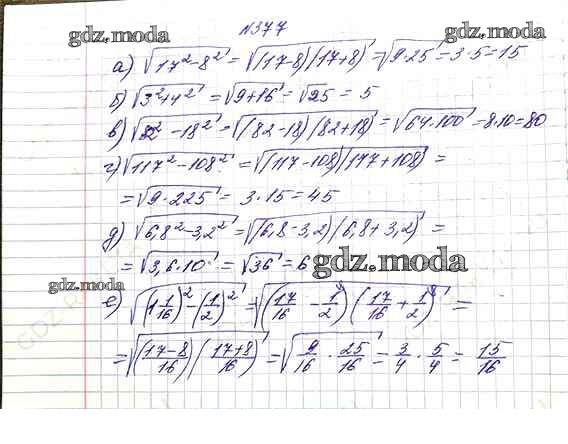 №377
gdz.moda gdz.moda
а) √(17² - 8²) = √((17-8)(17+8)) = √(9·25) = 3·5 = 15
б) √(3²+4²) = √(9+16) = √25 = 5
в) √(82² - 18²) = √((82-18)(82+18)) = √(64·100) = 8·10 = 80
г) √(117² - 108²) = √((117-108)(117+108)) =
= √(9·225) = 3·15 = 45
д) √(6,8² - 3,2²) = √((6,8-3,2)(6,8+3,2)) =
= √(3,6·10) = √36 = 6
gdz.moda
gdz.moda gdz.moda
е) √((1 1/16)² - (1/2)²) = √((17/16 - 1/2)(17/16 + 1/2)) =
= √(((17-8)/16)((17+8)/16)) = √(9/16 · 25/16) = 3/4 · 5/4 = 15/16
gdz.moda gdz.moda